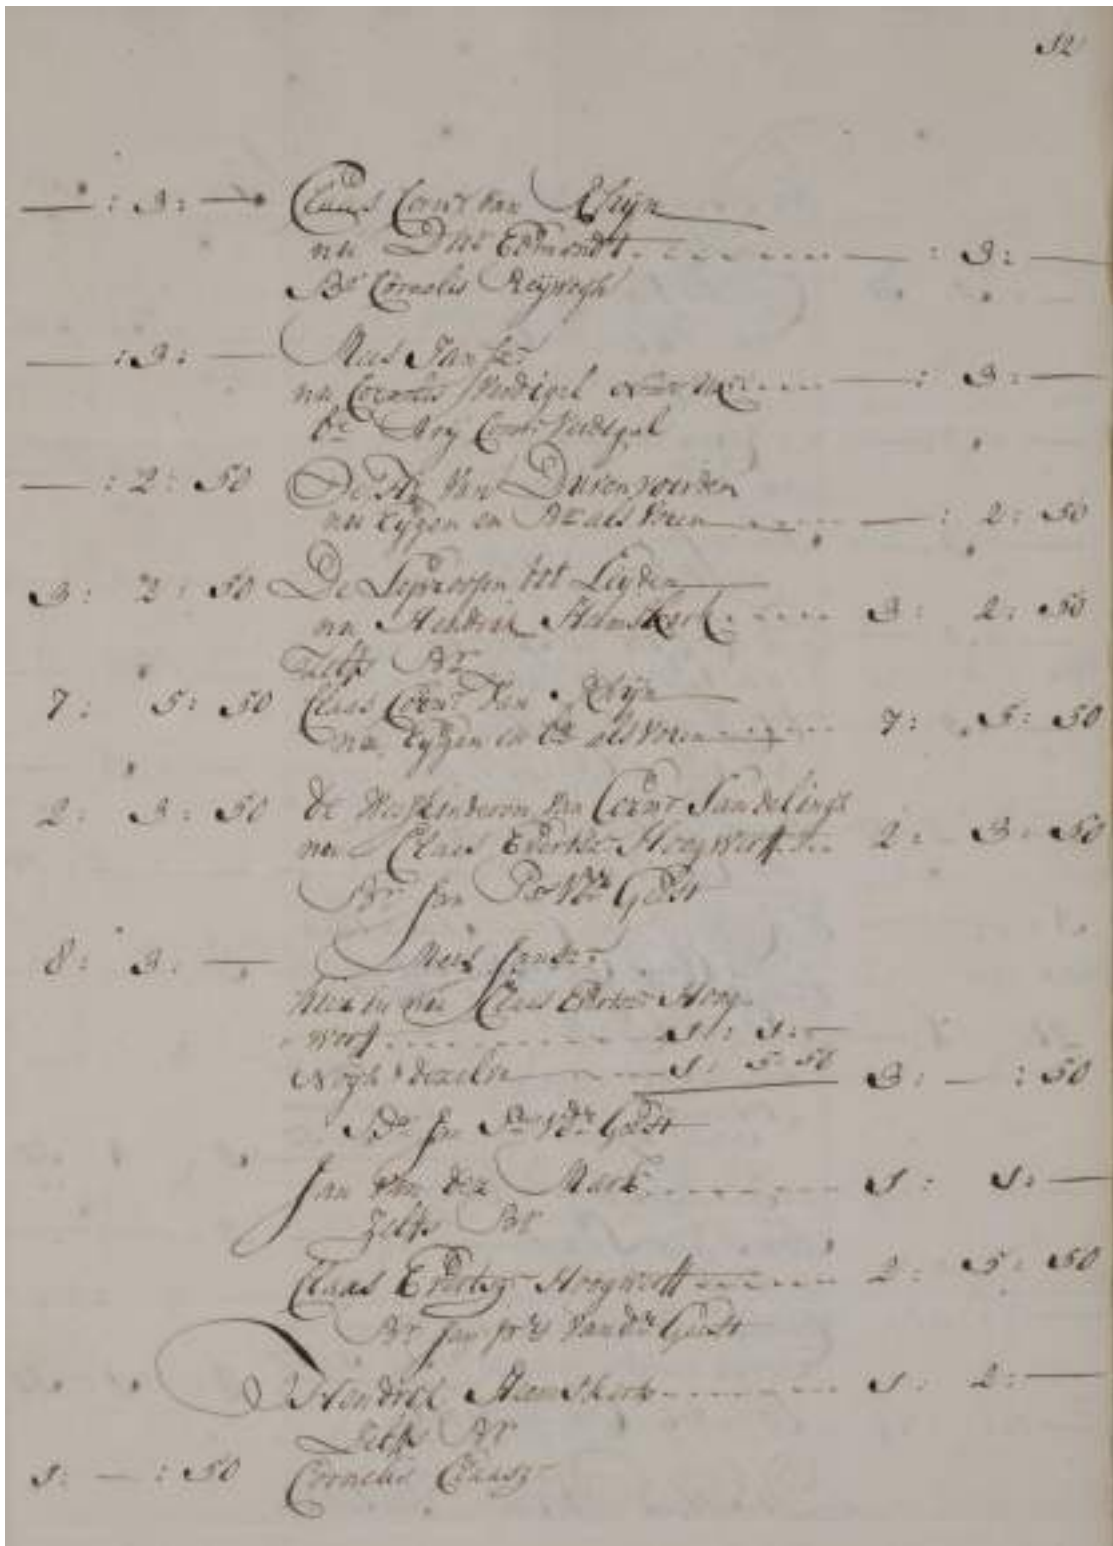 12
— : 3 : — Claas Corns van Rhijn
nu Dirk Egmondt — : 3 : —
Br Cornelis Reijnegh
— : 3 : — Mees Jansz
nu Cornelis — : 3 : —
Br Arij Corns
— : 2 : 50 De Hr van Duvenvoorden
nu Eijgen en Br als voren — : 2 : 50
3 : 2 : 50 De Leproosen tot Leijden
nu Hendrik Hamskerk 3 : 2 : 50
zelfs Br
7 : 5 : 50 Claas Corns van Rhijn
nu Eijgen en Br als voren 7 : 5 : 50
2 : 3 : 50 de Weeskinderen van Corns Sandelingh
nu Claas Evertsz Hoogwerff 2 : 3 : 50
Br Jan Pr vdr Geest
8 : 3 : — Mees Jansz
nu Claas Evertsz Hoog-
werf 1 : 1 : —
Nogh dezelve 1 : 5 : 50 3 : — : 50
Br Jan Pr vdr Geest
Jan van der Mark 1 : 1 : —
Zelfs Br
Claas Evertsz Hoogwerff 2 : 5 : 50
Br Jan vander Geest
Hendrik Hamskerk 1 : 2 : —
Zelfs Br
1 : — : 50 Cornelis Claasz